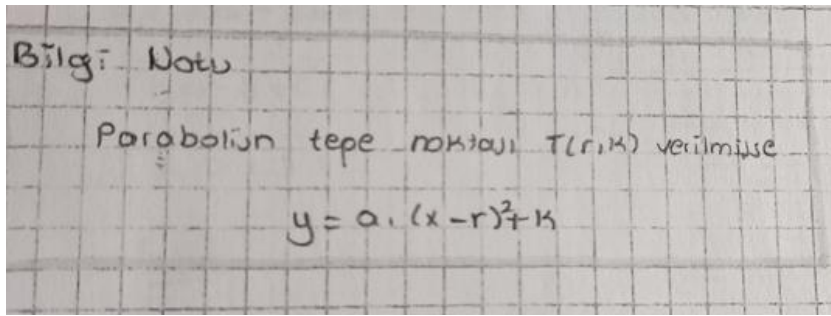 Bilgi Notu
Parabolün tepe noktası T(r,k) verilmişse
y = a. (x-r)²+k